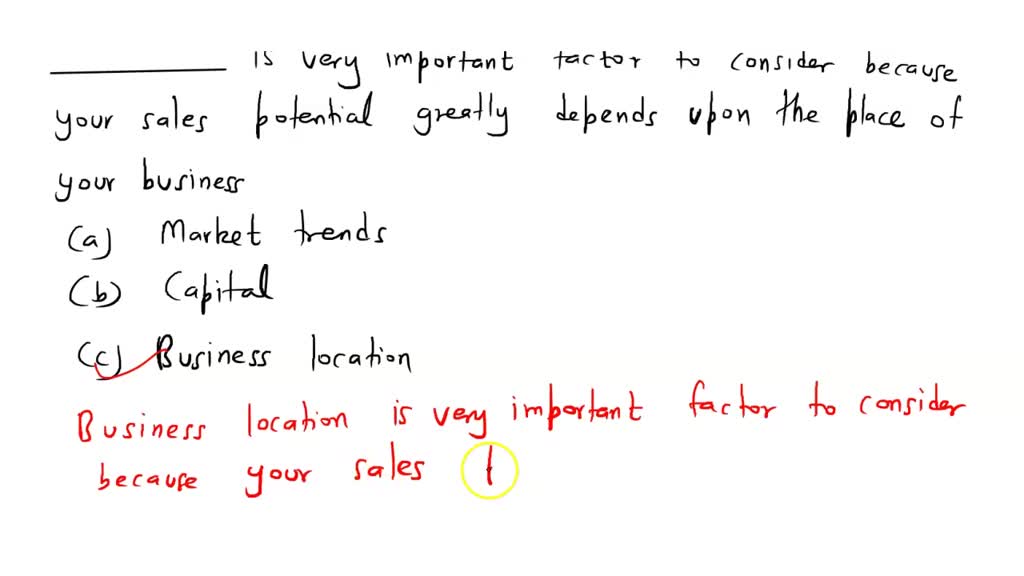 __________ is very important factor to consider because
your sales potential greatly depends upon the place of
your business
(a) Market trends
(b) Capital
(c) Business location
Business location is very important factor to consider
because your sales